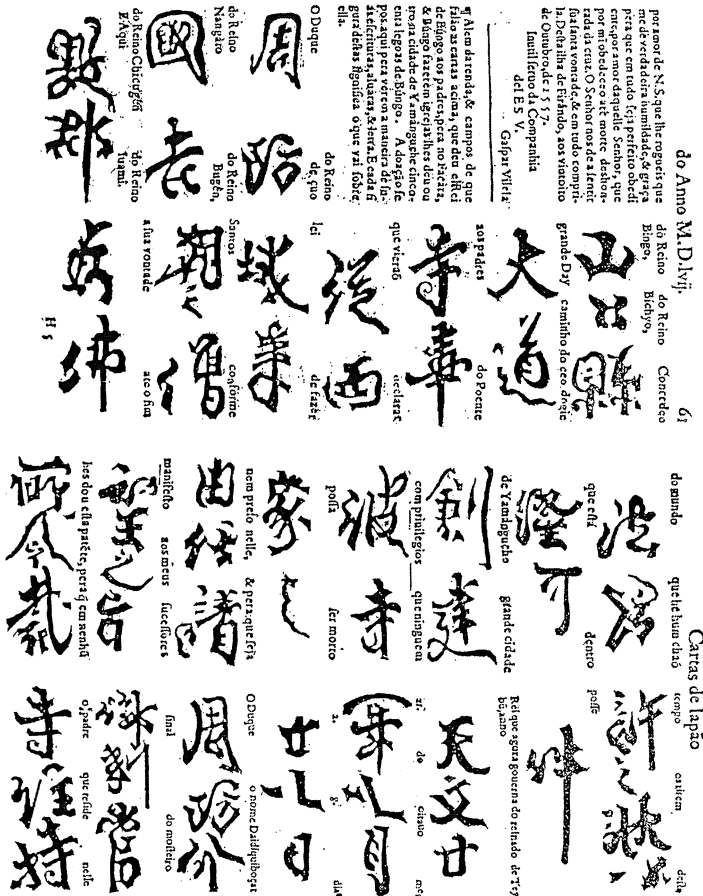 do Anno M.D.lvij. 61
por amor de N.S. que lhe rogueis que
me de verdadeira humildade, & graça
pera que em tudo seja perfeito obedi
ente, por amor daquelle Senhor, que
por mi obedeceo atè morte deshon-
rada da cruz. O Senhor nos de a sentir
sua santa vontade, & em tudo compri-
la. Desta ilha de Firándo, aos vintoito
de Outubro, de 1557.
Inutil seruo da Companhia
del E S V.
Gaspar Vilela.
¶ Alem da renda, & campos de que
falão as cartas acima, que deu elRei
de Búngo aos padres, pera no Facàta,
& Búngo fazerem igrejas lhes deu ou
tro na cidade de Yamánguche cinco-
enta legoas de Búngo. A doação se
pos aqui pera vèreem a maneira de su-
as escrituras, aluaràs, & letra. E cada fi
gura destas significa o que vai sobre
ella.
O Duque do Reino de, çuo
周 防
do Reino Nángàto do Reino Bugèn,
國 吉
do Reino Chicugèn E Aqui do Reino Iuami.
敷 郡
do Reino Bingo, do Reino Bichyo, Concedeo
山 口 縣
grande Day caminho do ceo. dogie
大 道
aos padres do Poente
寺 事
que vieraõ declarar
從 西
lei de fazèr
域 來
Santos conforme
朝 僧
a sua vontade ate o fim
為 佛
H 5
Cartas de Iapão
do mundo que he hum chaõ
法 紹
que està dentro
隆 可
de Yamágucho grande cidade
創 建
com priuilegios que ninguem
彼 寺
possa ser morto
家 之
nem preso nelle, & pera que seja
由 任 請
manifesto aos meus sucessores
望 之 旨
lhes dou esta patẽte, pera q̃ em nenhũ
所 令 裁
tempo os tirem desta
許 之 狀
posse
如 件
Rei que agora gouerna do reinado de Tey
天 文 廿
do oitauo
一 年 八 月
廿 八 日
O Duque o nome Daidiquiboçat
周 防 介
final do mosteiro
御 判 當
o padre que reside nelle
寺 住 持